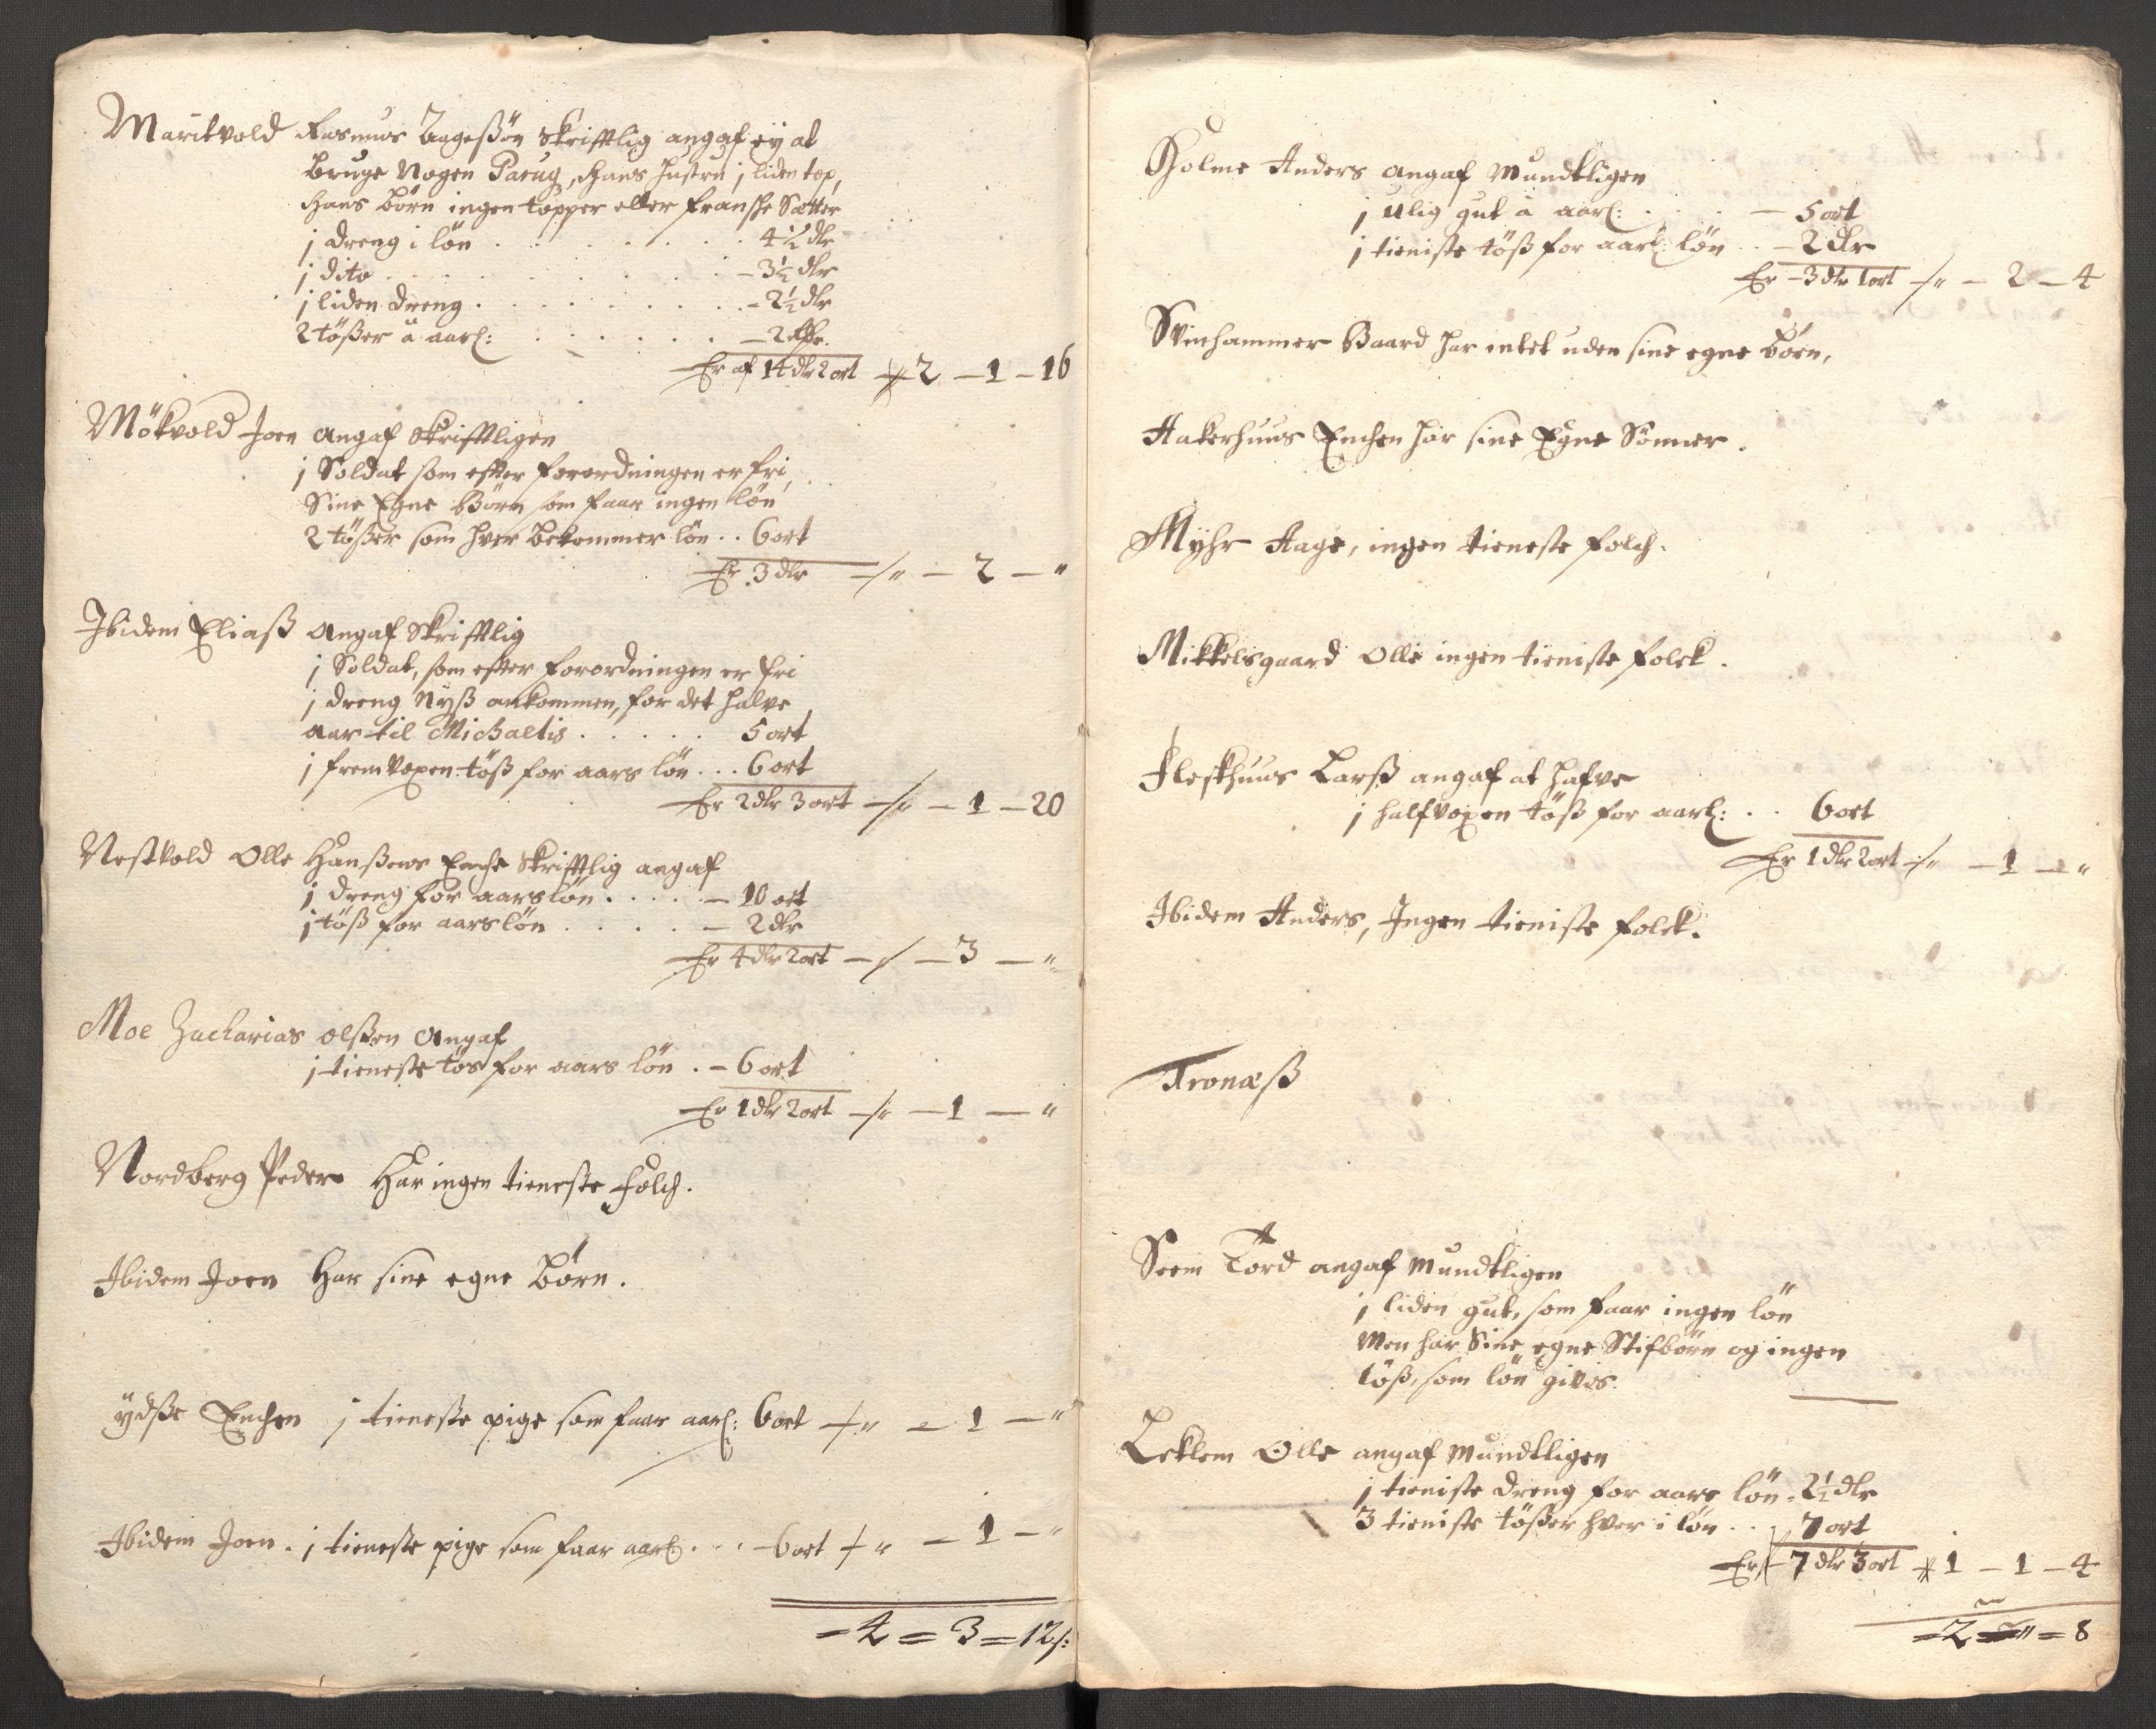 Maritvold Rasmus Aagesßön skrifftlig angaf ey at
Bruge Nogen Paruq, Hans Hustru j liden top,
Hans Börn ingen topper eller franshe Sætter
j dreng i lön . . . . . . 4½ dlr
j dito . . . . . . . . – 3½ dlr
j liden dreng . . . . . . . – 2½ dlr
2 tößer à aarl: . . . . . . – 2 dlr.
Er af 14 dlr 2 ort – 2 – 1 – 16
Mökvold Joen angaf skrifftligen
j Soldat som efter forordningen er fri,
Sine Egne Börn som faar ingen lön
2 tößer som hver bekommer lön . . 6 ort
Er 3 dlr – " – 2 – "
Ibidem Eliaß angaf skrifftlig
j Soldat, som efter forordningen er fri
j dreng Nyß ankommen, for det halve
aar til Michaelis . . . . . 5 ort
j fremvoxen töß for aars lön . . . 6 ort
Er 2 dlr 3 ort – " – 1 – 20
Nestvold Olle Hanßens Enche skrifftlig angaf
j dreng for aarslön . . . . – 10 ort
j töß for aarslön . . . . – 2 dlr
Er 4 dlr 2 ort – " – 3 – "
Moe Zacharias olßen angaf
j tieneste tös for aars lön . – 6 ort
Er 1 dlr 2 ort – " – 1 – "
Nordberg Peder Har ingen tieneste folch.
Ibidem Joen Har sine egne Börn.
ydße Enchen j tieneste pige som faar aarl: 6 ort – " – 1 – "
Ibidem Joen . j tieneste pige som faar aarl . . . – 6 ort – " – 1 – "
– 4 = 3 = 12 s:
Holme Anders angaf Mundtligen
j ulig gut à aarl: . . . – 5 ort
j tieniste töß for aarl: lön . . – 2 dlr
Er – 3 dlr 1 ort – " – 2 – 4
Svinhammer Baard har intet uden sine egne Börn,
Aakerhuus Enchen har sine Egne Sönner.
Myhr Aage, ingen tieneste folch.
Mikkelsgaard Olle ingen tieniste folck.
Fleskhuus Larß angaf at hafve
j halfvoxen töß for aarl: . . 6 ort
Er 1 dlr 2 ort – " – 1 – "
Ibidem Anders, Ingen tieniste folck.
Tronæß
Seem Tord angaf Mundtligen
j liden gut, som faar ingen lön
Men har Sine egne Stifbörn og ingen
töß, som lön gives.
Leklem Olle angaf Mundtligen
j tieniste dreng for aars lön – 2½ dlr
3 tieniste tößer hver i lön . . 7 ort
Er – 7 dlr 3 ort – 1 – 1 – 4
= 2 = " = 8